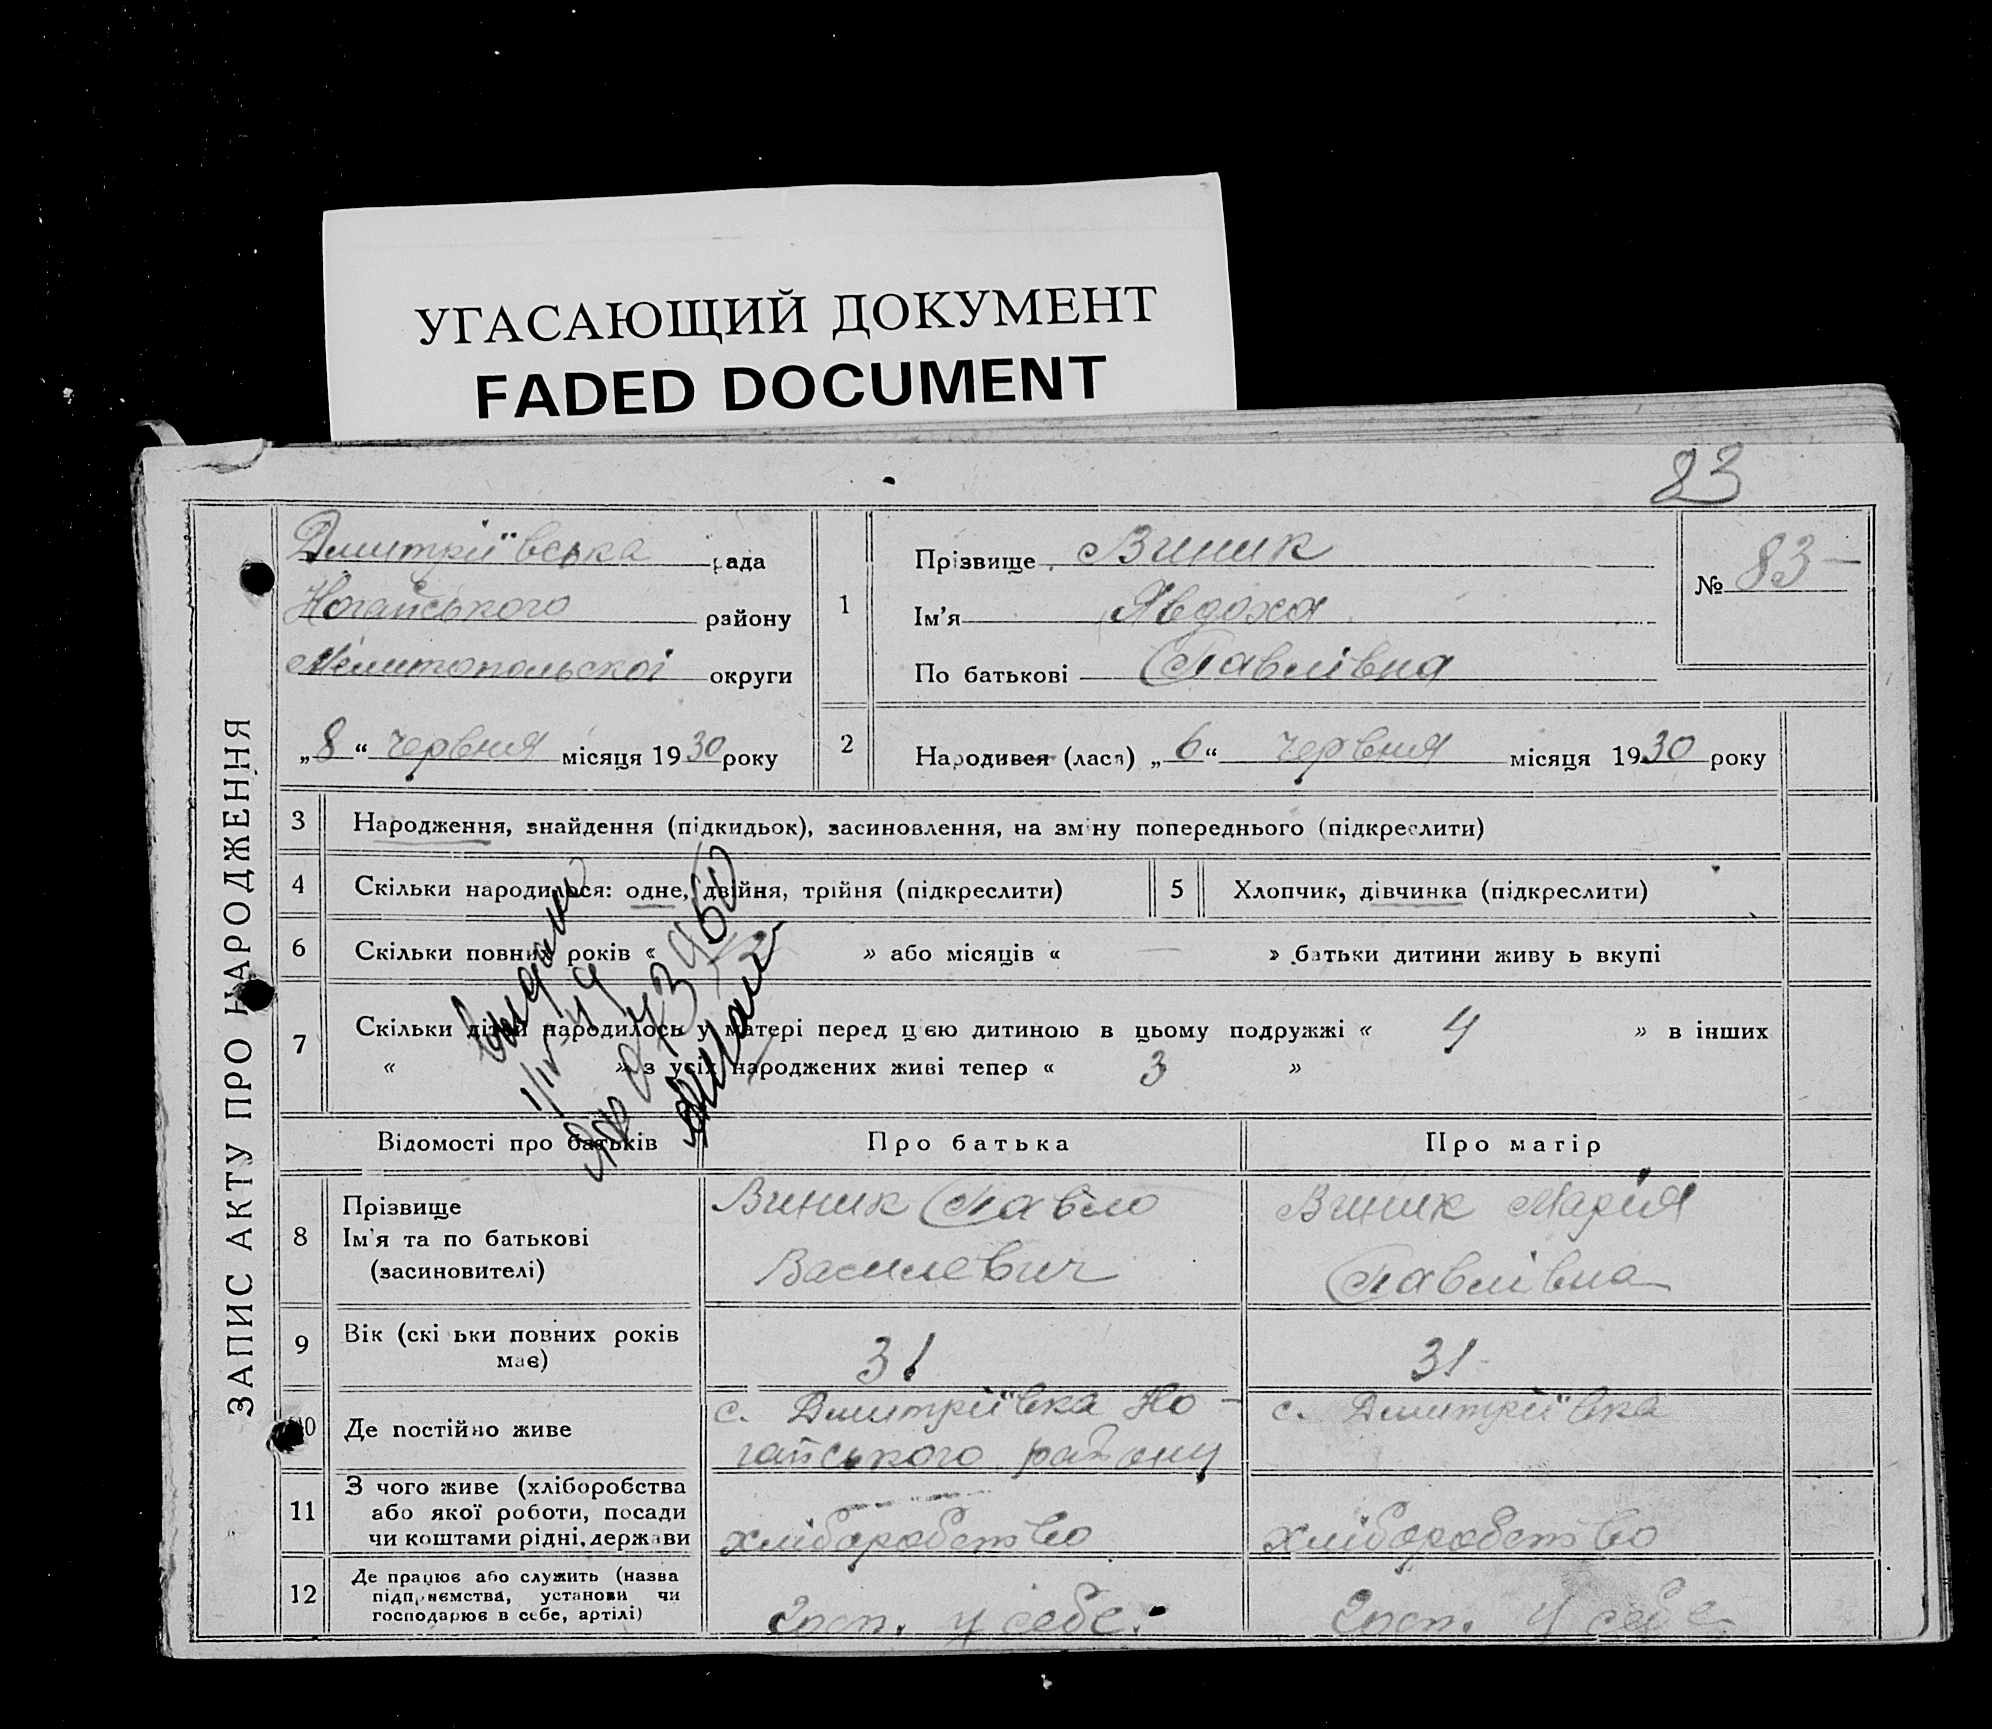 УГАСАЮЩИЙ ДОКУМЕНТ
FADED DOCUMENT
83
ЗАПИС АКТУ ПРО НАРОДЖЕННЯ
Дмитріївська рада
Ногайського району
Мелитопольскоі округи
„8“ червня місяця 1930 року
1
Прізвище Виник
Ім'я Явдоха
По батькові Павлівна
№ 83–
2
Народився (лася) „6“ червня місяця 1930 року
3 Народження, знайдення (підкидьок), засиновлення, на зміну попереднього (підкреслити)
4 Скільки народилося: одне, двійня, трійня (підкреслити)
5 Хлопчик, дівчинка (підкреслити)
6 Скільки повних років « 12 » або місяців « — » батьки дитини живу ь вкупі
7 Скільки дітей народилось у матері перед цією дитиною в цьому подружжі « 4 » в інших
« » з усіх народжених живі тепер « 3 »
1/IV 49
Відомості про батьків
Про батька
Про матір
8 Прізвище
Ім'я та по батькові
(засиновителі)
Виник Павло
Василевич
Виник Марія
Павлівна
9 Вік (скі ьки повних років
має)
31
31
10 Де постійно живе
с. Дмитріївка Но-
гайського району
с. Дмитріївка
11 З чого живе (хліборобства
або якої роботи, посади
чи коштами рідні, держави
хліборобство
хліборобство
12 Де працює або служить (назва
підприємства, установи чи
господарює в себе, артілі)
Госп. у себе.
Госп. у себе